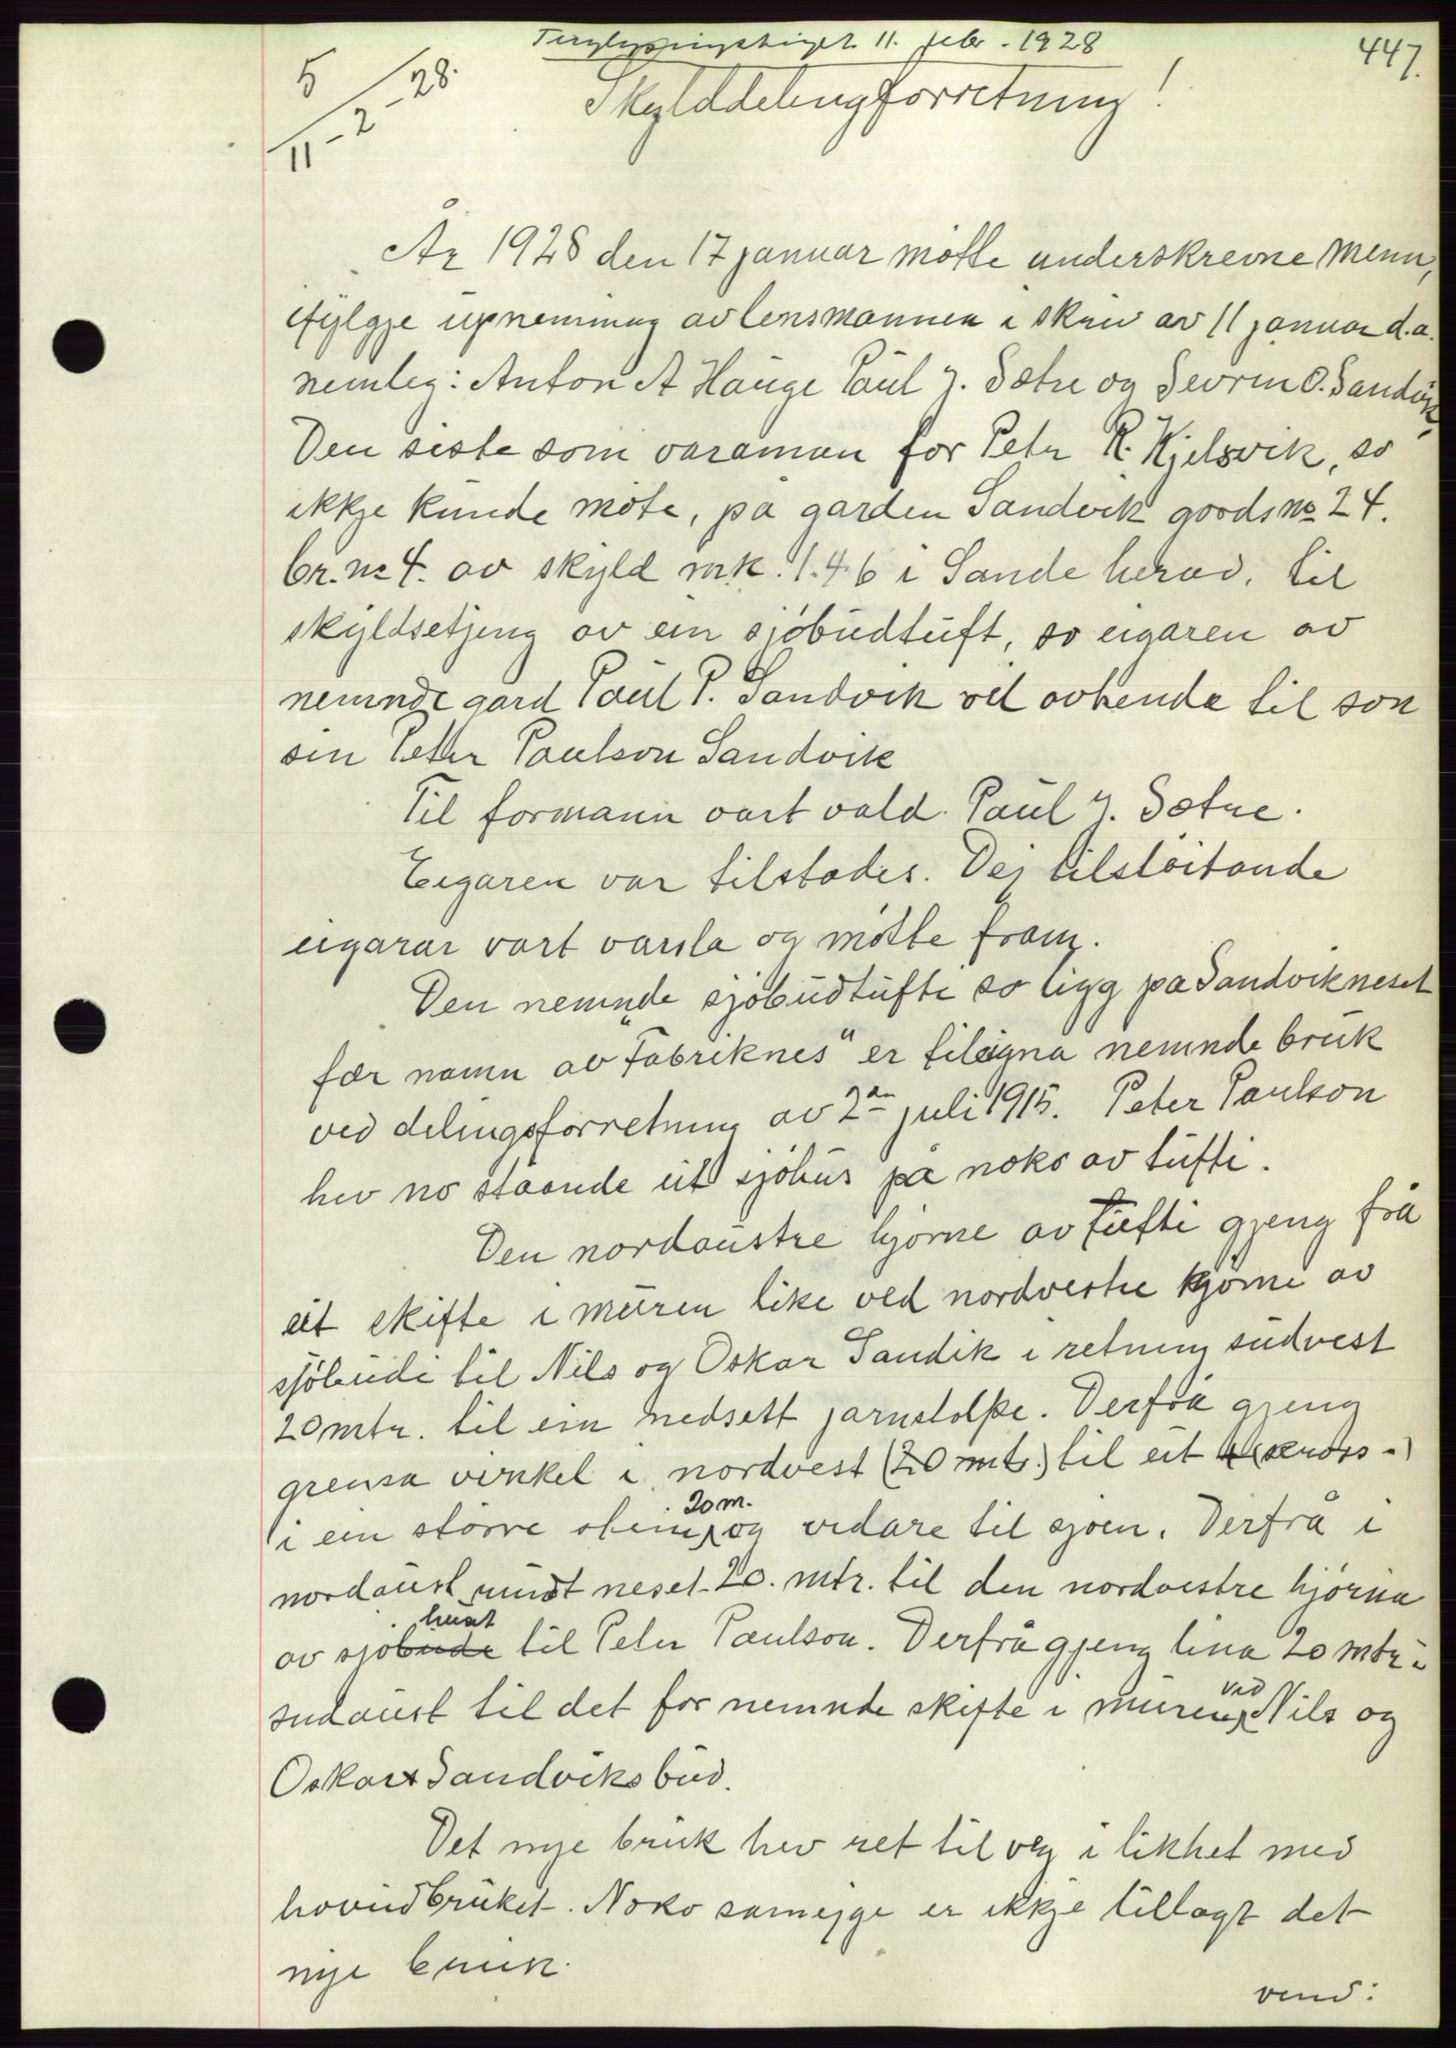 Tinglysningstinget 11. febr. 1928
447.
5
11 - 2 - 28.
Skylddelingforretning!
År 1928 den 17 januar møtte underskrevne menn,
ifylgje upnemning av lensmannen i skriv av 11 januar d.a.
nemleg: Anton A Hauge Paul J. Sætre og Sevrin O. Sandvik,
Den siste som varaman for Petr R. Kjelsvik, so
ikkje kunde møte, på garden Sandvik gaards no 24.
br. no 4. av skyld mk. 1.46 i Sande herad, til
skyldsetjeng av ein sjøbudtuft, so eigaren av
nemnde gard Paul P. Sandvik vil avhende til son
sin Peter Paulson Sandvik
Til formann vart vald Paul J. Sætre.
Eigaren var tilstades. Dej tilstøitande
eigarar vart varsla og møtte fram.
Den nemnde sjøbudtufti so ligg på Sandvikneset
fær namn av "Fabriknes" er tileigna nemnde bruk
ved delingsforretning av 2an juli 1915. Peter Paulson
hev no ståande eit sjøhus på noko av tufti.
Den nordaustre hjørne av tufti gjeng frå
eit skifte i muren like ved nordvestre hjørne av
sjøbudi til Nils og Oskar Sandik i retning sudvest
20 mtr. til ein nedsett jarnstolpe. Derfrå gjeng
grensa vinkel i nordvest (20 mtr.) til eit (kross-)
i ein større stein, 20 m. og vidare til sjøen. Derfrå i
nordaust rundt neset 20. mtr. til den nordvestre hjørna
av sjøbude huset til Peter Paulson. Derfrå gjeng lina 20 mtr i
sudaust til det for nemnde skifte i muren, ved Nils og
Oskar Sandviks bud.
Det nye bruk hev ret til veg i likhet med
hovudbruket. Noko sameige er ikkje tillagt det
nye bruk.
vend: